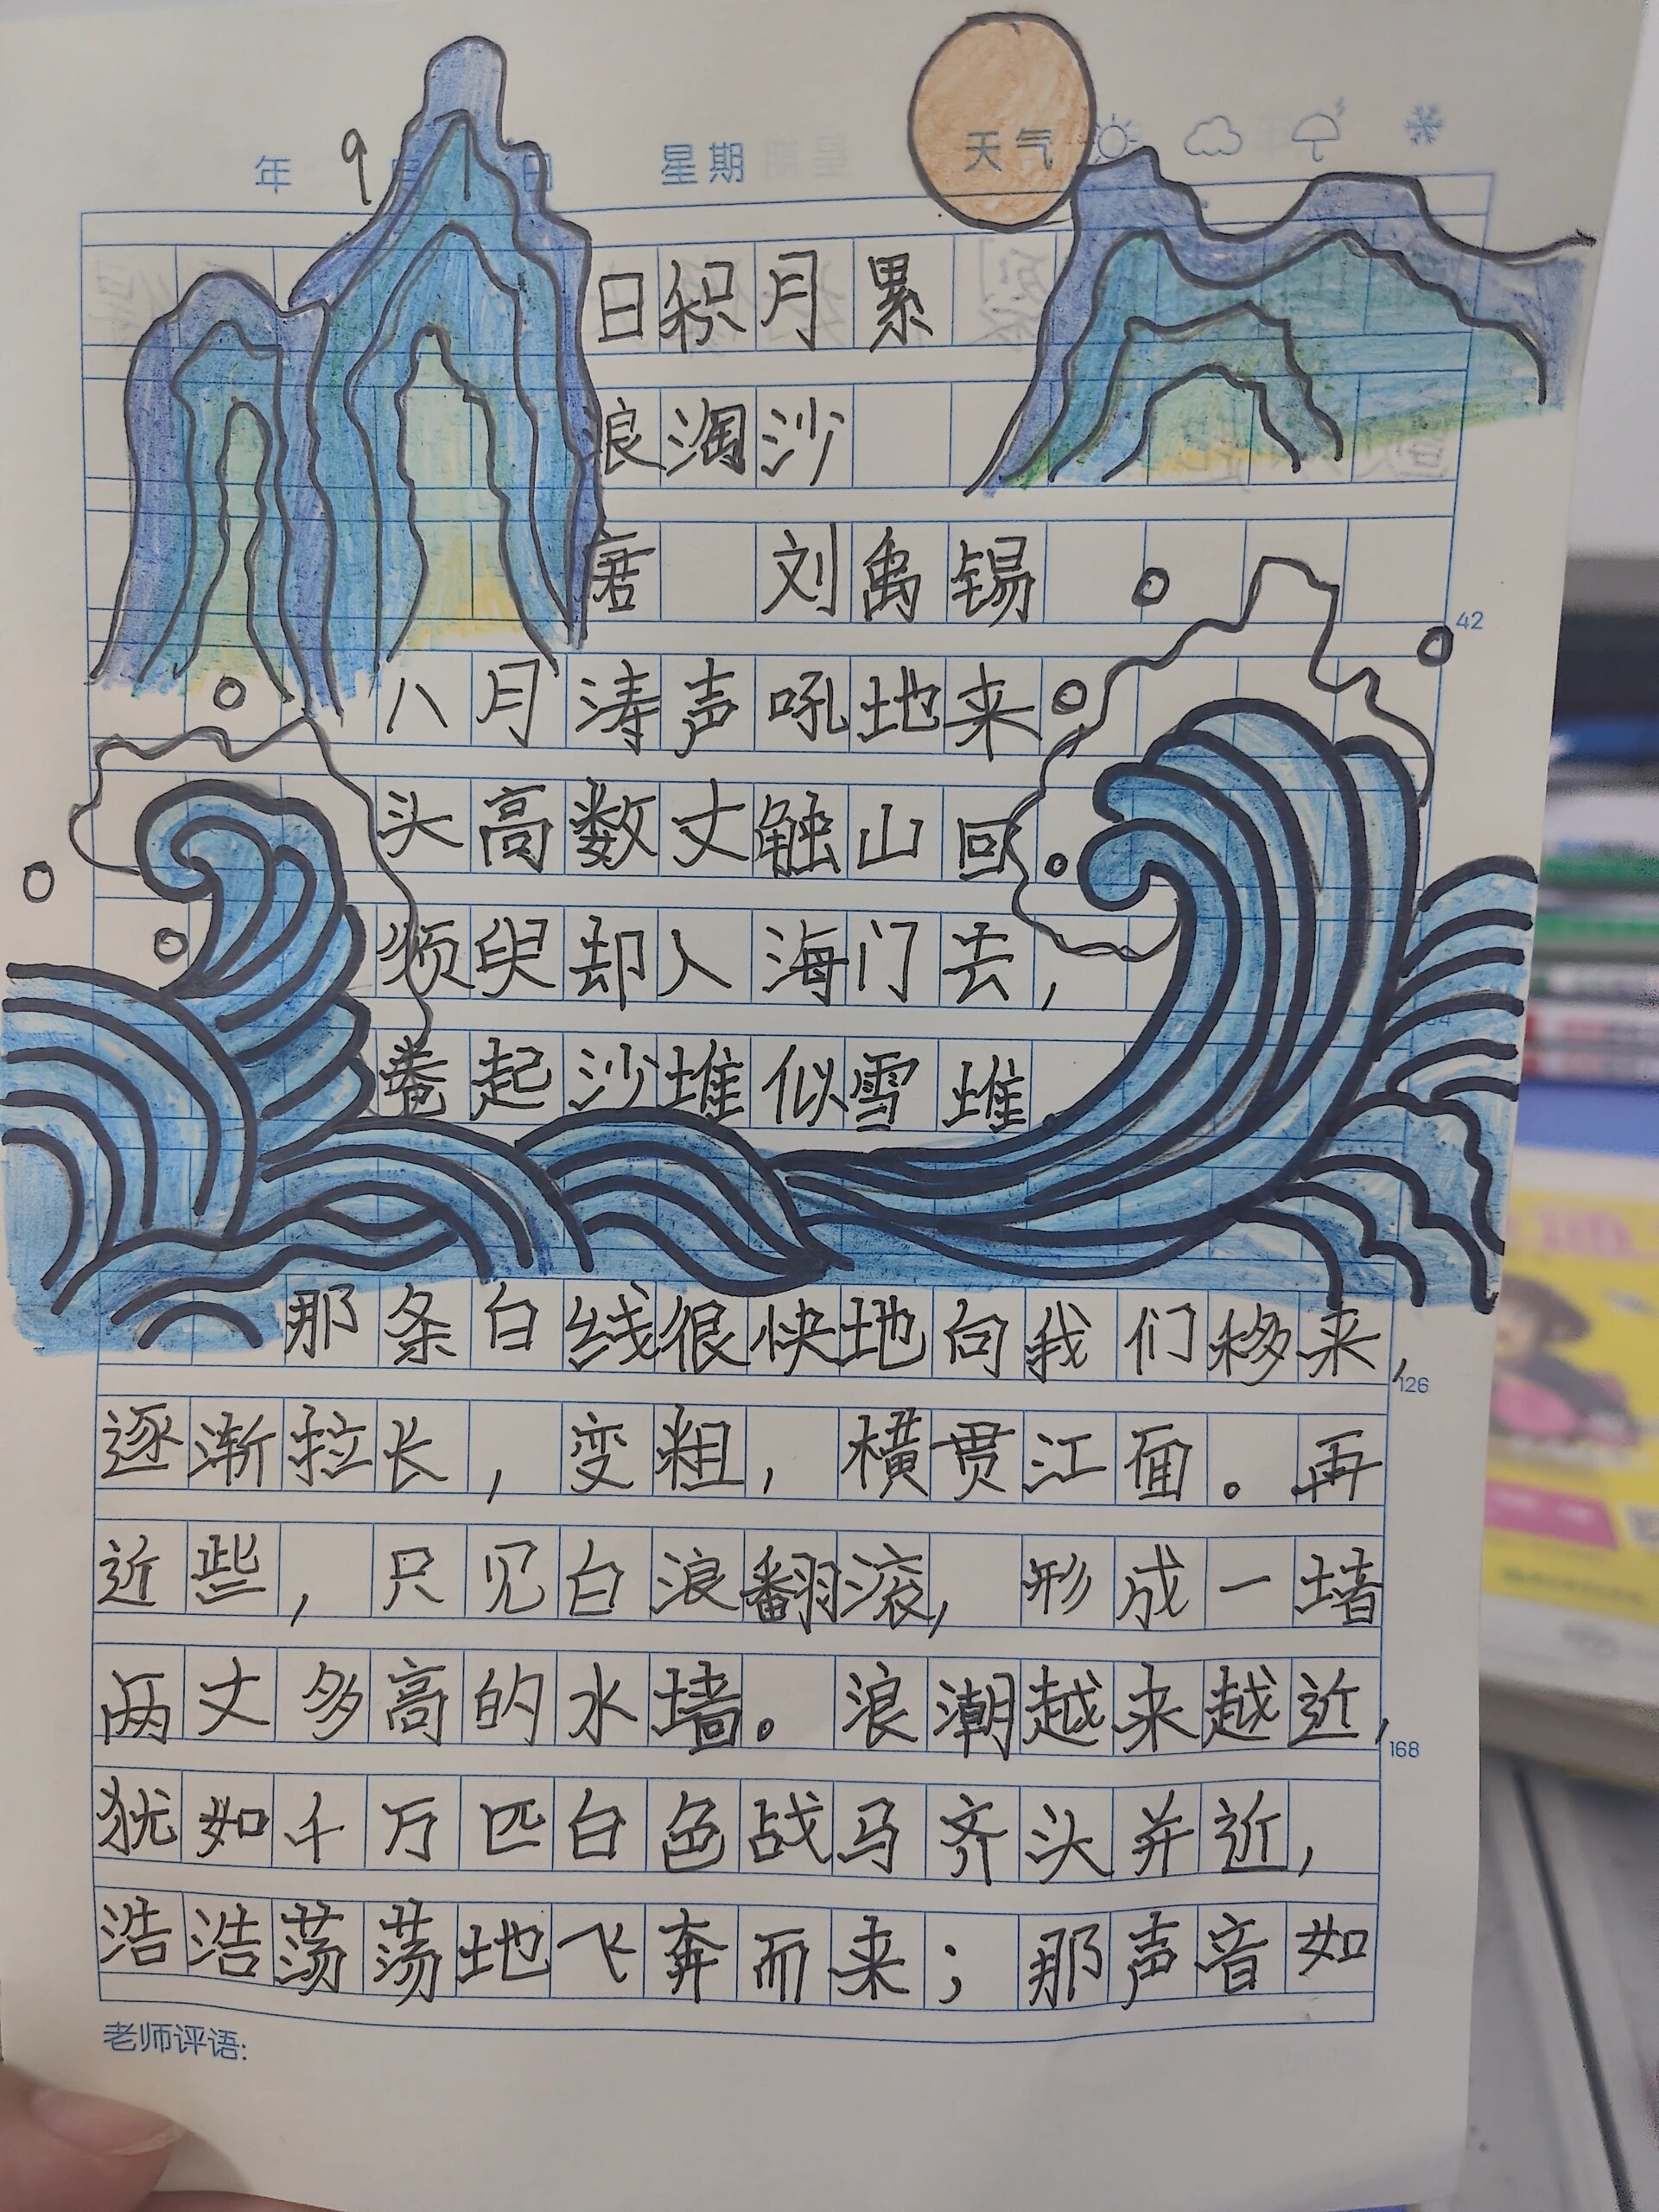 年 9月 日 星期 天气
日积月累
浪淘沙
唐 刘禹锡
八月涛声吼地来
头高数丈触山回
须臾却入海门去,
卷起沙堆似雪堆。
42
那条白线很快地向我们移来,
126
逐渐拉长,变粗,横贯江面。再
近些,只见白浪翻滚,形成一墙
两丈多高的水墙。浪潮越来越近,
168
犹如千万匹白色战马齐头并近,
浩浩荡荡地飞奔而来;那声音如
老师评语: